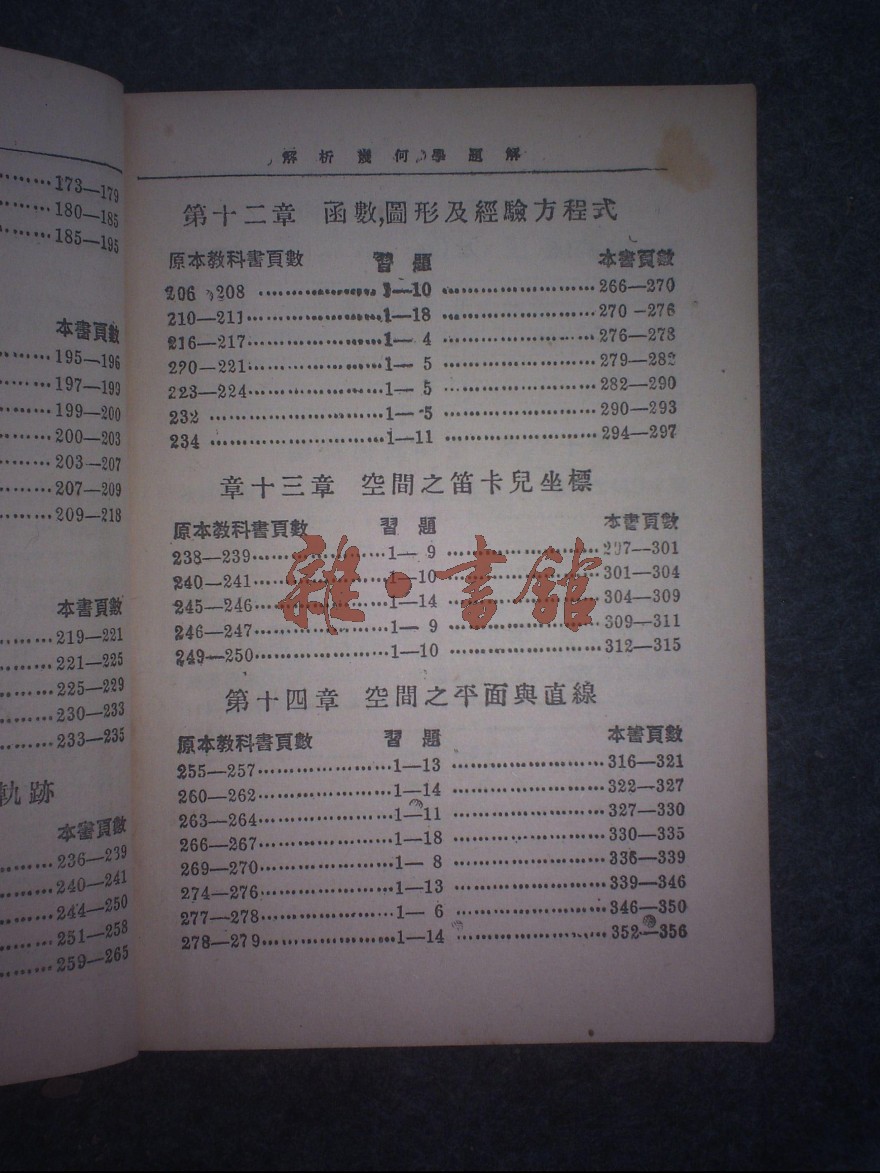 173—179
180—185
185—195
本書頁數
195—196
197—199
199—200
200—203
203—207
207—209
209—218
本書頁數
219—221
221—225
225—229
230—233
233—235
軌跡
本書頁數
236—239
240—241
244—250
251—258
259—265
解析幾何學題解
第十二章 函數,圖形及經驗方程式
原本教科書頁數 習題 本書頁數
206 208 ········ 1—10 ········ 266—270
210—211 ········ 1—18 ········ 270—276
216—217 ········ 1— 4 ········ 276—278
220—221 ········ 1— 5 ········ 279—282
223—224 ········ 1— 5 ········ 282—290
232 ········ 1—5 ········ 290—293
234 ········ 1—11 ········ 294—297
章十三章 空間之笛卡兒坐標
原本教科書頁數 習題 本書頁數
238—239 ········ 1— 9 ········ 297—301
240—241 ········ 1—10 ········ 301—304
245—246 ········ 1—14 ········ 304—309
246—247 ········ 1— 9 ········ 309—311
249—250 ········ 1—10 ········ 312—315
雜·書館
第十四章 空間之平面與直線
原本教科書頁數 習題 本書頁數
255—257 ········ 1—13 ········ 316—321
260—262 ········ 1—14 ········ 322—327
263—264 ········ 1—11 ········ 327—330
266—267 ········ 1—18 ········ 330—335
269—270 ········ 1— 8 ········ 336—339
274—276 ········ 1—13 ········ 339—346
277—278 ········ 1— 6 ········ 346—350
278—279 ········ 1—14 ········ 352—356